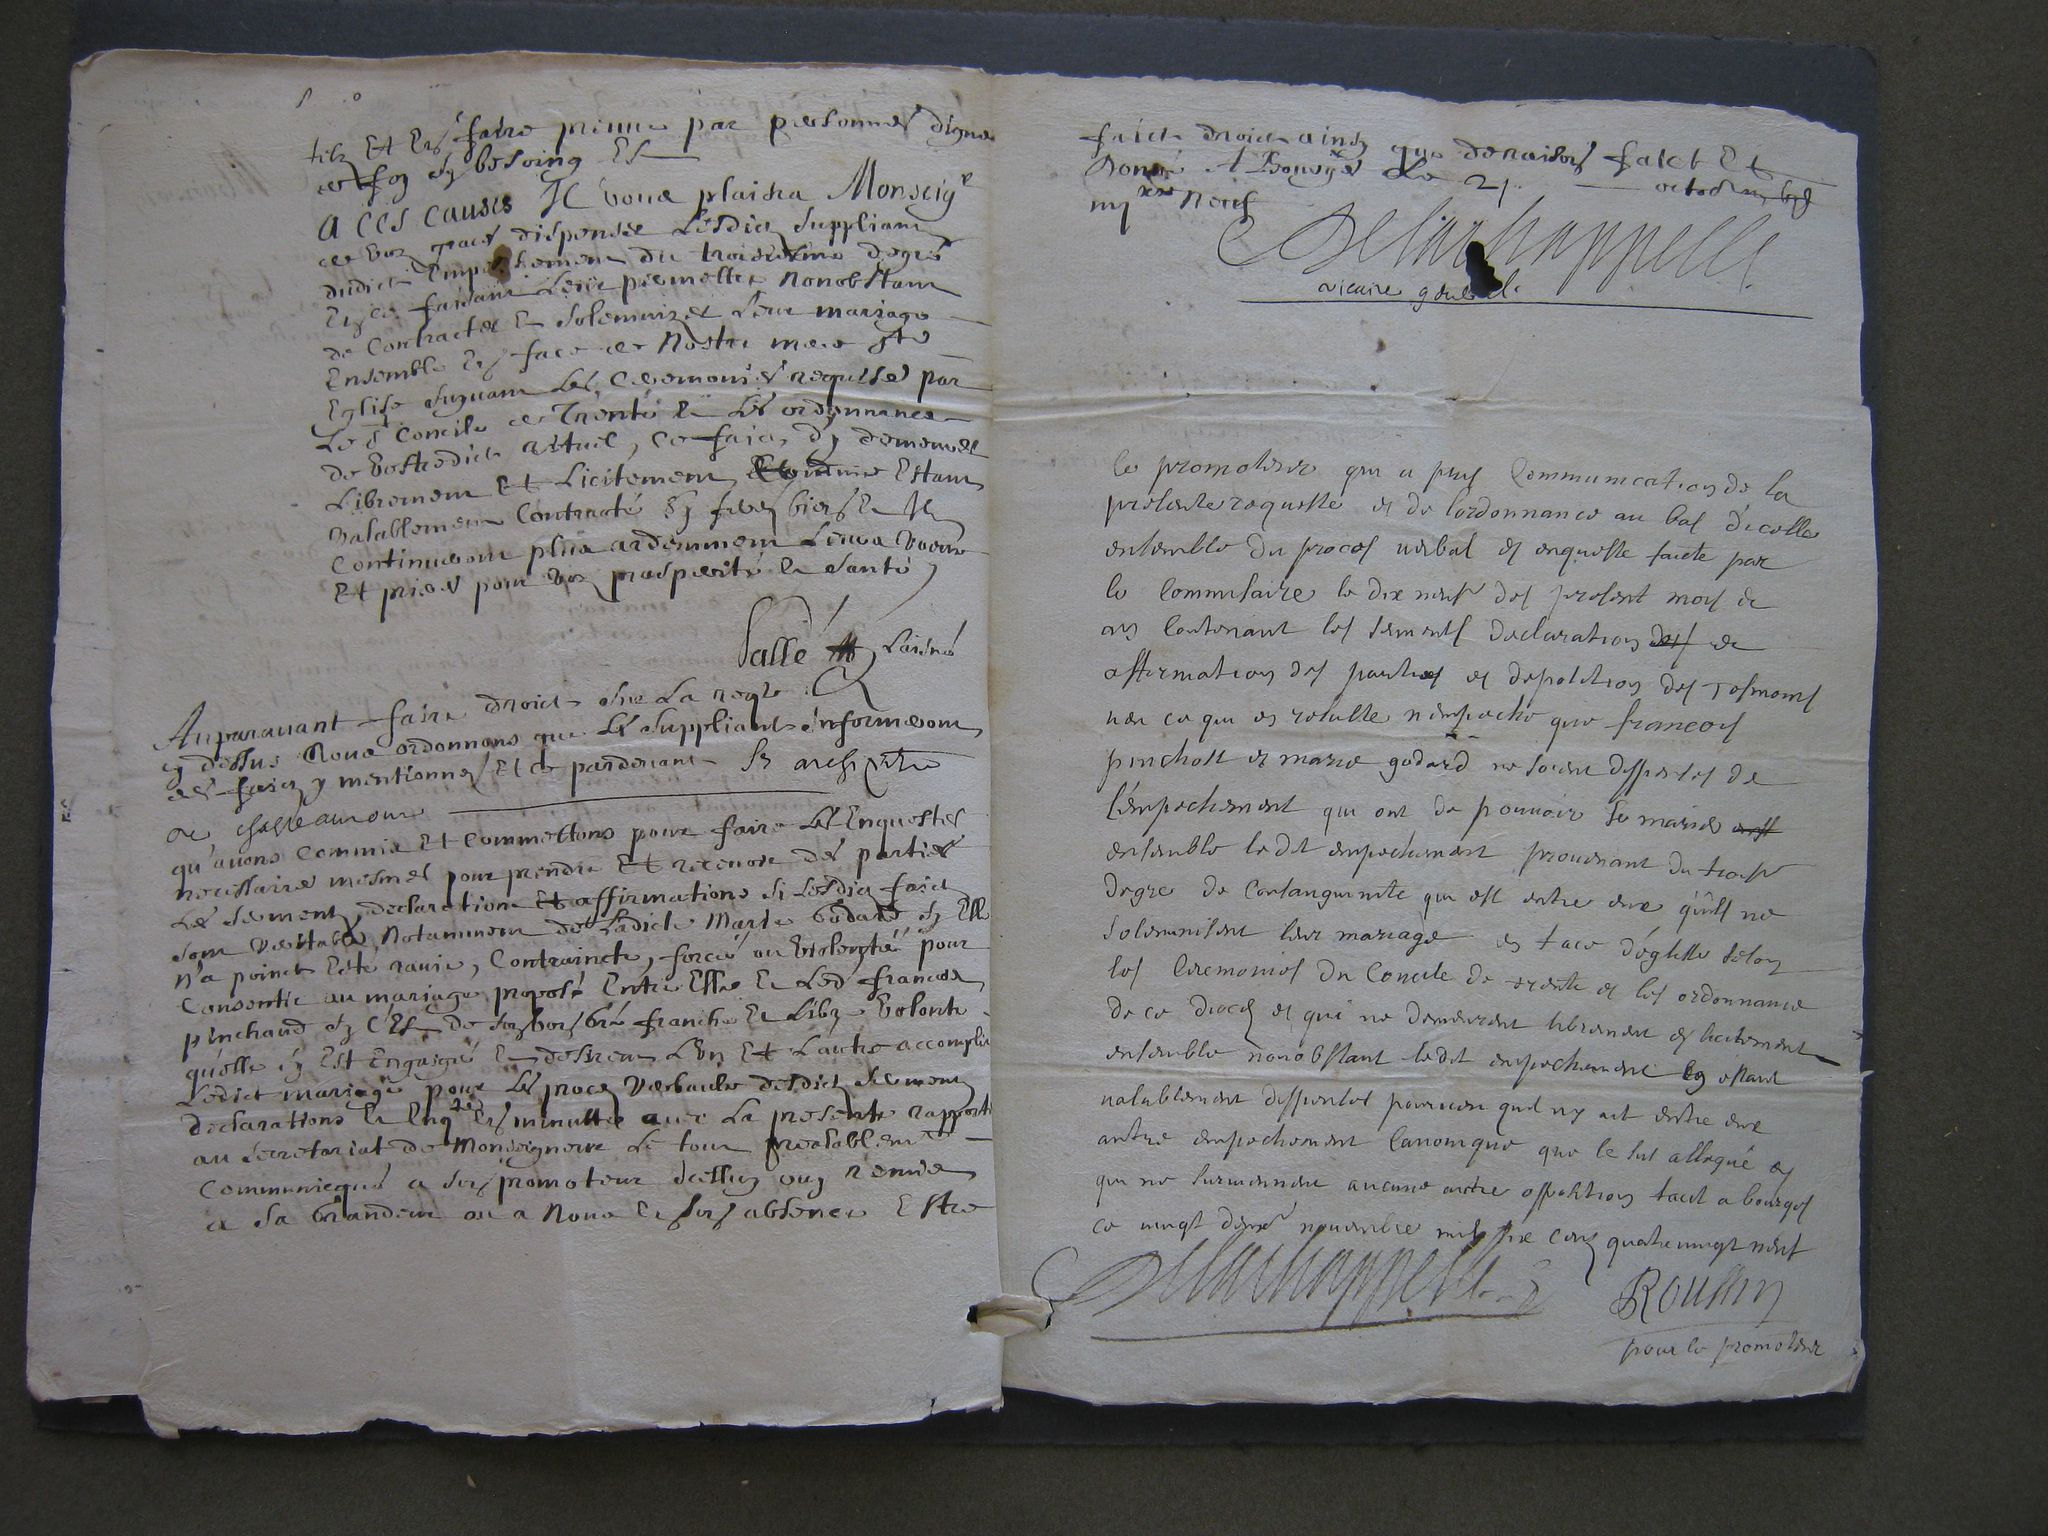 faire preuve par personnes dignes
de foy sy besoing est
A CES CAUSES Il vous plaira Monseigr
de voz graces dispenser lesdictz suppliantz
dudict empeschement du troiziesme degré
En ce faisant leur permettre nonobstant
de contracter et solemnizer leur mariage
Ensemble En face de nostre mere ste
Eglize suyvant les ceremonies requises par
Le st Concile de Trente et les ordonnances
de vostredict
Librement Et Licitement Estant
valablement contracté
continueront plus ardemment leurs voeux
Et prieres pour voz prosperité et santé
Sallé Laisné
Auparavant faire droict sur la reqte
cy dessus Nous ordonnons que les suppliants informeront
des faictz y mentionnes Et ce pardevant
de chasteauroux
qu'avons commis Et commettons pour faire les Enquestes
necessaires mesmes pour prendre Et recevoir des parties
Les serments, declarations Et affirmations si lesdictz faictz
sont veritables, Notamment de Ladicte Marie Godard sy Elle
n'a poinct esté ravie, Contraincte, forcée ou violentée pour
Consentir au mariage proposé Entre Elle et Led francois
pinchaud sy c'Est de son bon gré franche et libre volonté
qu'elle sy Est Engaigée et desirent L'un Et L'autre accomplir
Ledict mariage pour les proces verbaulx desdictz sermentz
declarations et Enqtes En minutte avec La presente rapportés
au secretariat de Monseigneur Le tout prealablemt
communicqué a son promoteur
a sa Grandeur ou a Nous En son absence Estre
faict droict ainsy que de raison faict Et
Donné A Bourges Le 21
neuf
Delachappelle
vicaire general
le promoteur qui a pris communication de la
presente requeste et de l'ordonnance au bas d'icelle
ensemble du proces verbal et enqueste faicte par
le commissaire le dix neuf des present mois et
an contenant les serments declaration et
affirmation des parties et deposition des tesmoins
veu ce qui en resulte n'empeche que francois
pinchost et marie godard ne soient dispenses de
l'empechement qui ont de pouvoir se marier
ensemble ledit empechement provenant du trois
degre de consanguinite qui est entre eux qu'ils ne
solemnisent leur mariage en face d'eglise selon
les ceremonies du Concile de trente et les ordonnance
de ce diocese et qui ne demeurent librement et licitement
ensemble nonobstant ledit empechement estant
valablement dispenses pourveu quil ny ait entre eux
autre empechement canonique que le sus allegué et
qui ne survienne aucune autre opposition fait a bourges
ce vingt deux novembre mil six cens quatre vingt neuf
Delachappelle
Roussin
pour le promoteur